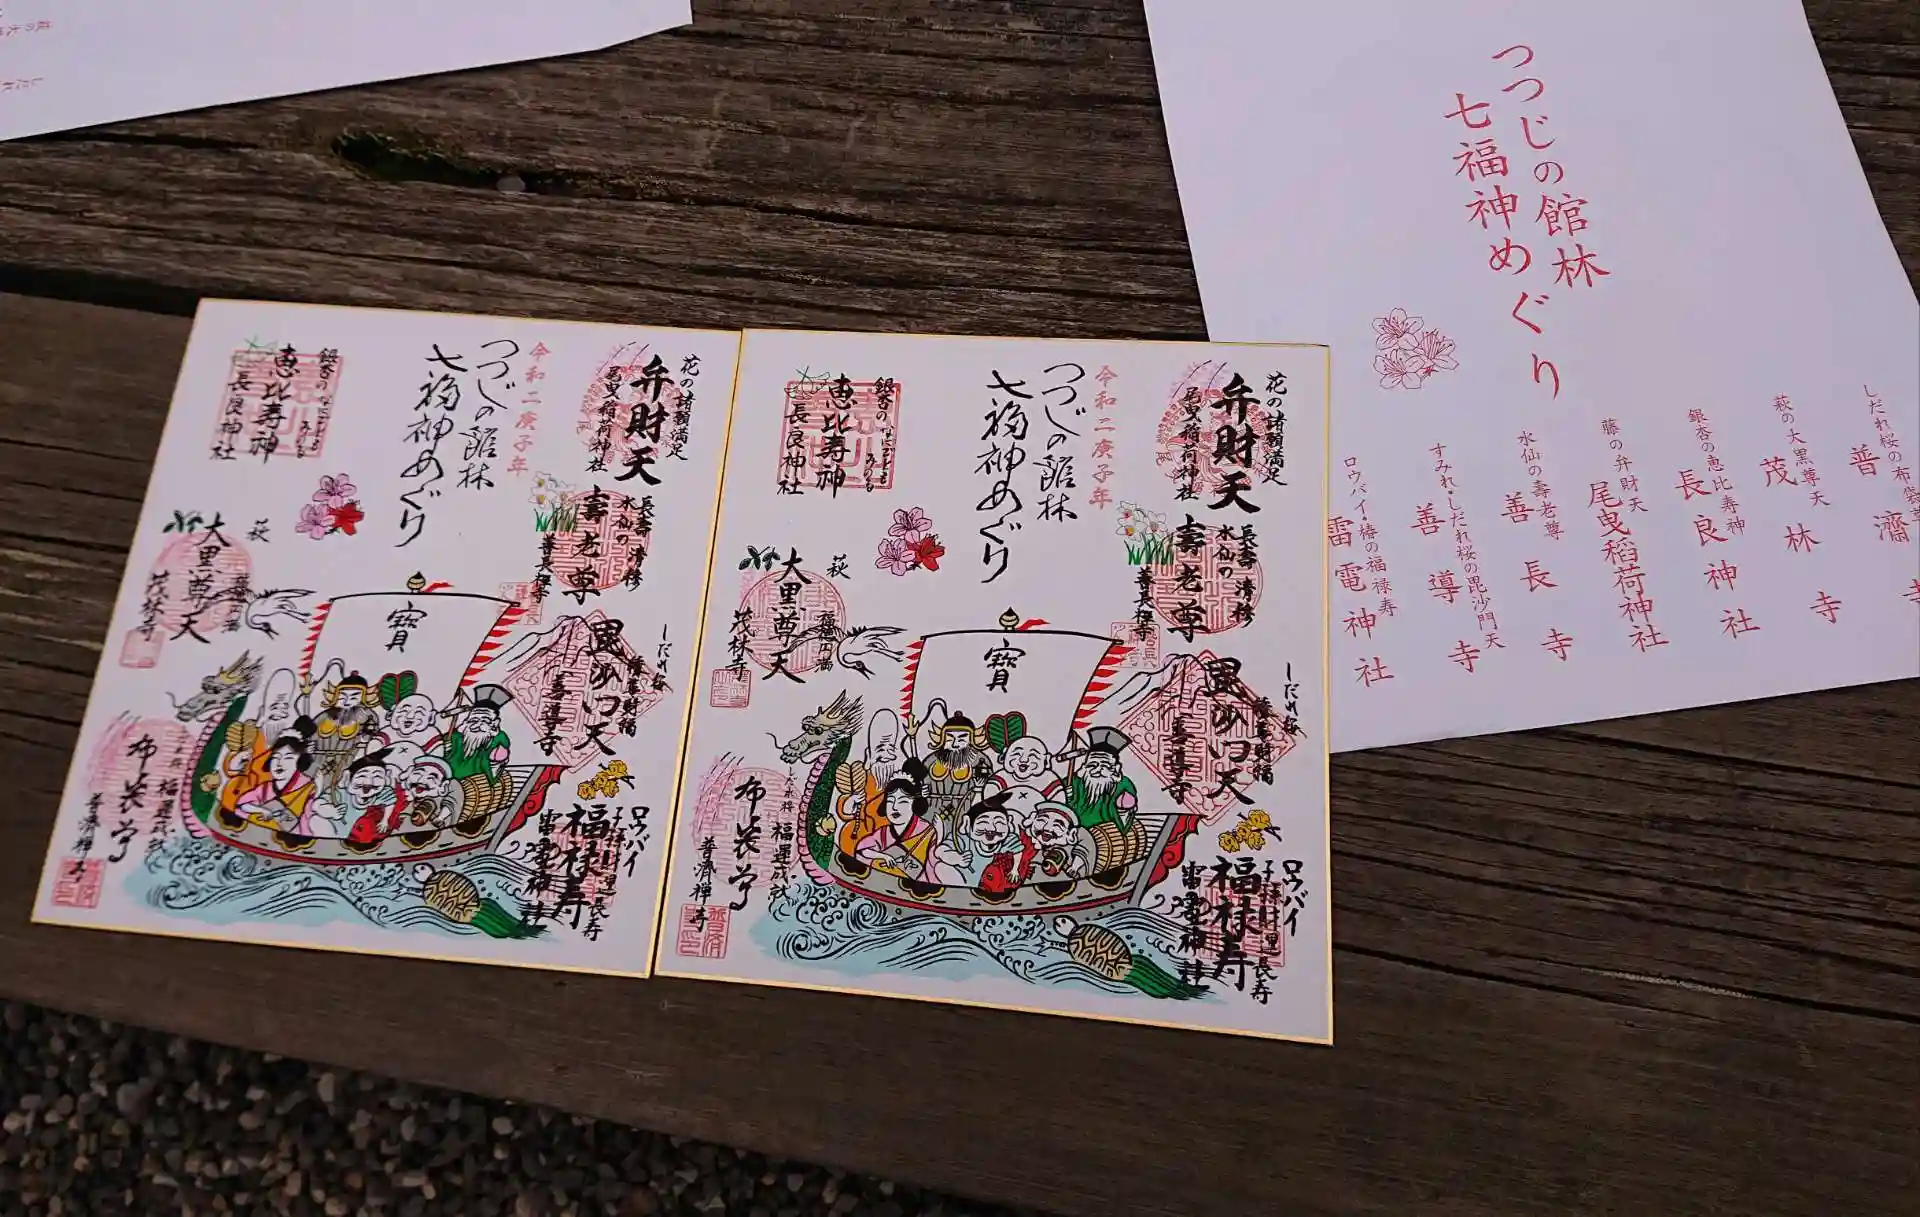 つつじの館林
七福神めぐり
しだれ桜の布袋尊
普濟寺
萩の大黒尊天
茂林寺
銀杏の恵比寿神
長良神社
藤の弁財天
尾曳稲荷神社
水仙の壽老尊
善長寺
すみれ・しだれ桜の毘沙門天
善導寺
ロウバイ・椿の福禄寿
雷電神社
花の諸願満足
弁財天
尾曳稲荷神社
長壽 清修
水仙の
壽老尊
善長禅寺
しだれ桜
毘沙門天
善導寺
ロウバイ
福禄寿
雷電神社
令和二庚子年
つつじの館林
七福神めぐり
銀杏の
恵比寿神
長良神社
萩
大黒尊天
茂林寺
寶
福運成就
布袋尊
普濟禅寺
花の諸願満足
弁財天
尾曳稲荷神社
長壽 清修
水仙の
壽老尊
善長禅寺
しだれ桜
毘沙門天
善導寺
ロウバイ
福禄寿
雷電神社
令和二庚子年
つつじの館林
七福神めぐり
銀杏の
恵比寿神
長良神社
萩
大黒尊天
福徳円満
茂林寺
寶
福運成就
布袋尊
普濟禅寺